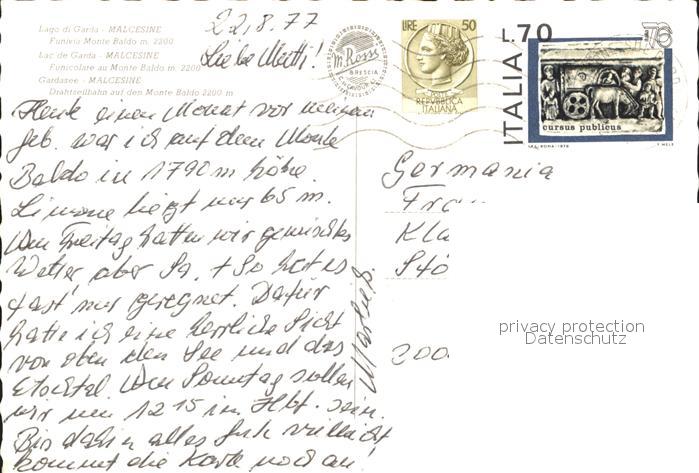 Lago di Garda - MALCESINE
Funivia Monte Baldo m. 2200
Lac de Garda - MALCESINE
Funicolare au Monte Baldo m. 2200
Gardasee - MALCESINE
Drahtseilbahn auf den Monte Baldo 2200 m.
22.8.77
Liebe Mutti!
Heute einen Monat vor meinem
Geb. war ich auf dem Monte
Baldo in 1790 m Höhe.
Limone liegt nur 65 m.
Am Freitag hatten wir gemischtes
Wetter aber Sa. + So hat es
fast nur geregnet. Dafür
hatte ich eine herrliche Sicht
von oben den See und das
Etschtal. Am Sonntag sollen
wir um 12 15 im Hbf. sein.
Bis dahin alles Gute vielleicht
kommt die Karte noch an!
m. Rossi
BRESCIA
LIRE 50
REPVBBLICA
ITALIANA
ITALIA L.70
76
cursus publicus
Germania
Fra
Kla
Stö
200
privacy protection
Datenschutz